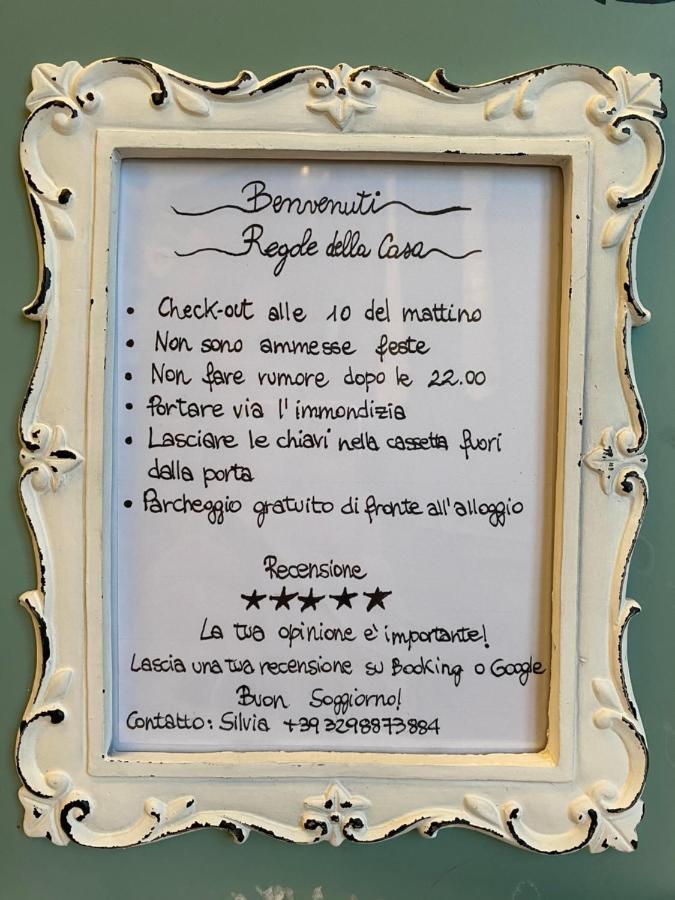 Benvenuti
Regole della Casa
• Check-out alle 10 del mattino
• Non sono ammesse feste
• Non fare rumore dopo le 22.00
• Portare via l'immondizia
• Lasciare le chiavi nella cassetta fuori
dalla porta
• Parcheggio gratuito di fronte all'alloggio
Recensione
★★★★★
La tua opinione e' importante!
Lascia una tua recensione su Booking o Google
Buon Soggiorno!
Contatto: Silvia +39 3298873884